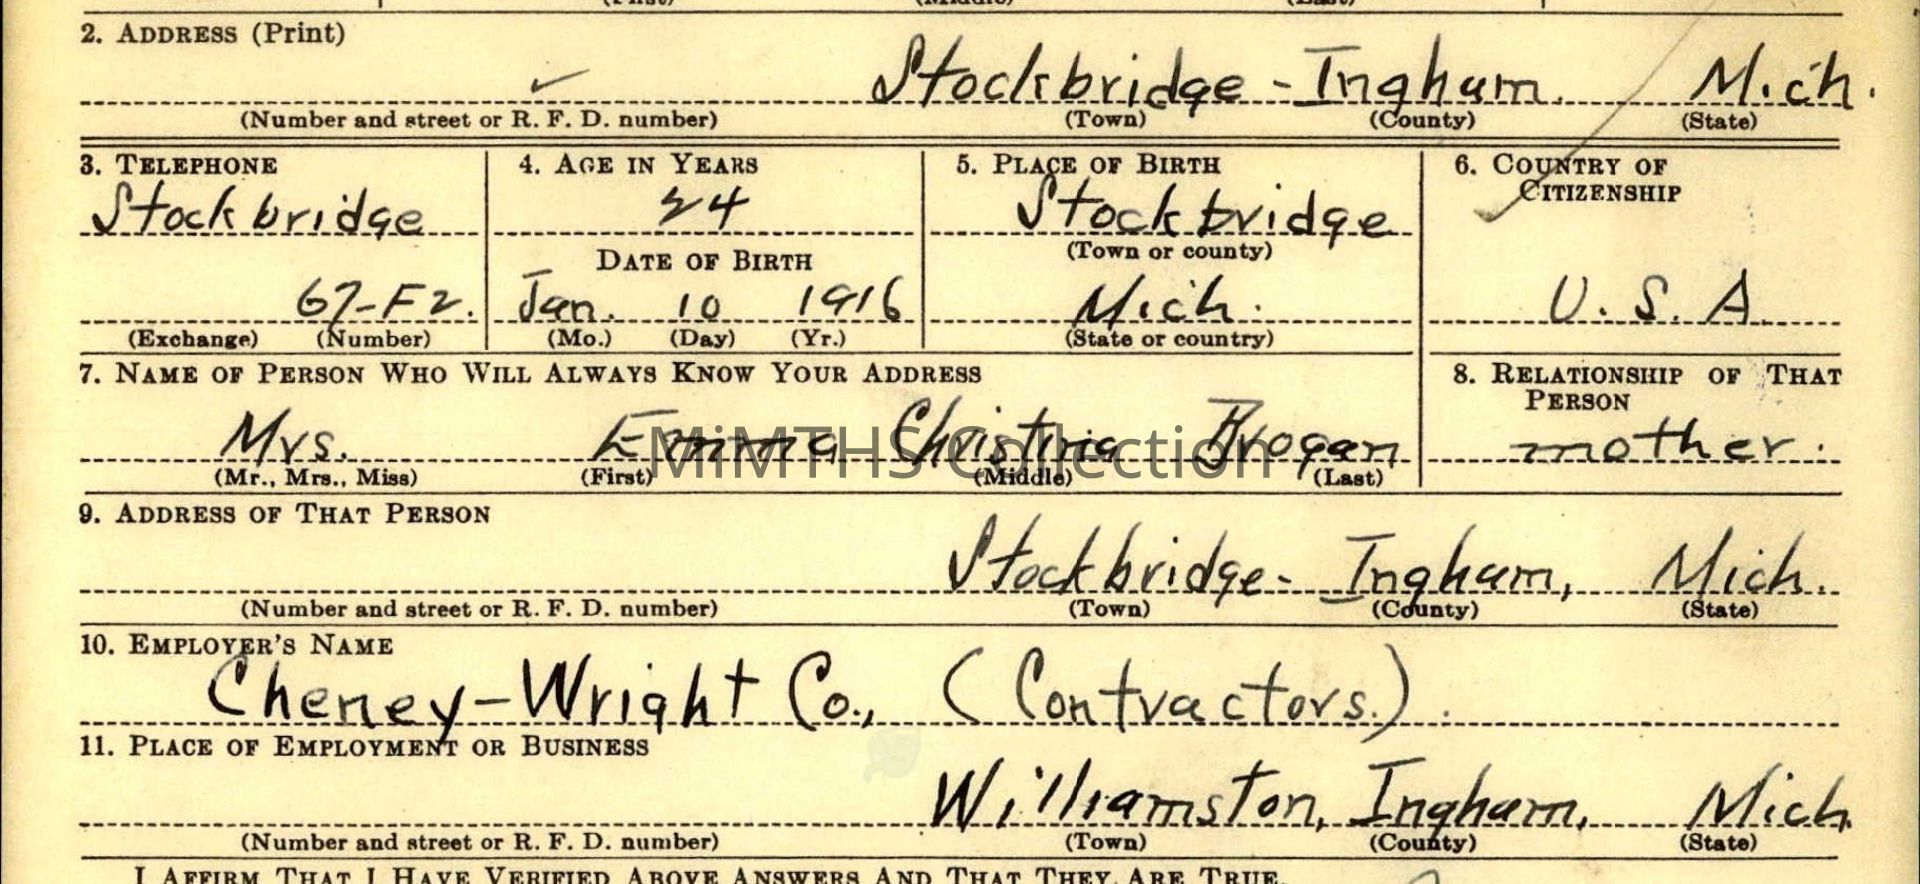 2. ADDRESS (Print)
Stockbridge - Ingham. Mich.
(Number and street or R. F. D. number) (Town) (County) (State)
3. TELEPHONE 4. AGE IN YEARS 5. PLACE OF BIRTH 6. COUNTRY OF CITIZENSHIP
Stockbridge 24 Stockbridge
DATE OF BIRTH (Town or county)
67-F2. Jan. 10 1916 Mich. U. S. A.
(Exchange) (Number) (Mo.) (Day) (Yr.) (State or country)
7. NAME OF PERSON WHO WILL ALWAYS KNOW YOUR ADDRESS 8. RELATIONSHIP OF THAT PERSON
Mrs. Emma Christina Brogan mother.
MiMTHS Collection
(Mr., Mrs., Miss) (First) (Middle) (Last)
9. ADDRESS OF THAT PERSON
Stockbridge - Ingham, Mich.
(Number and street or R. F. D. number) (Town) (County) (State)
10. EMPLOYER'S NAME
Cheney-Wright Co., (Contractors.).
11. PLACE OF EMPLOYMENT OR BUSINESS
Williamston, Ingham, Mich.
(Number and street or R. F. D. number) (Town) (County) (State)
I AFFIRM THAT I HAVE VERIFIED ABOVE ANSWERS AND THAT THEY ARE TRUE.